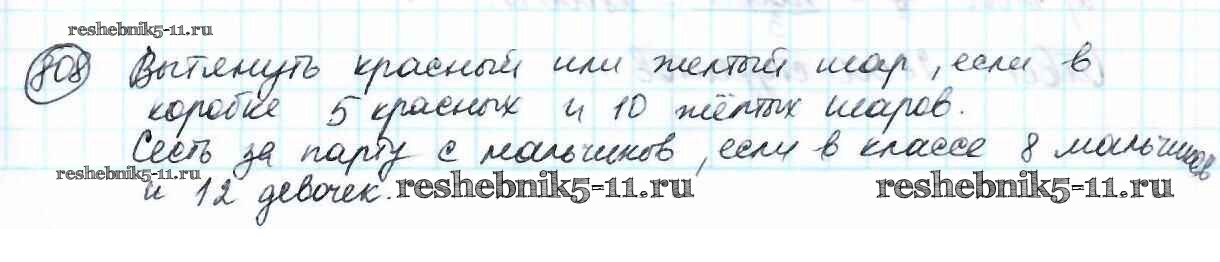 reshebnik5-11.ru
808 Вытянуть красный или желтый шар, если в
коробке 5 красных и 10 жёлтых шаров.
Сесть за парту с мальчиков, если в классе 8 мальчиков
reshebnik5-11.ru
и 12 девочек.
reshebnik5-11.ru
reshebnik5-11.ru